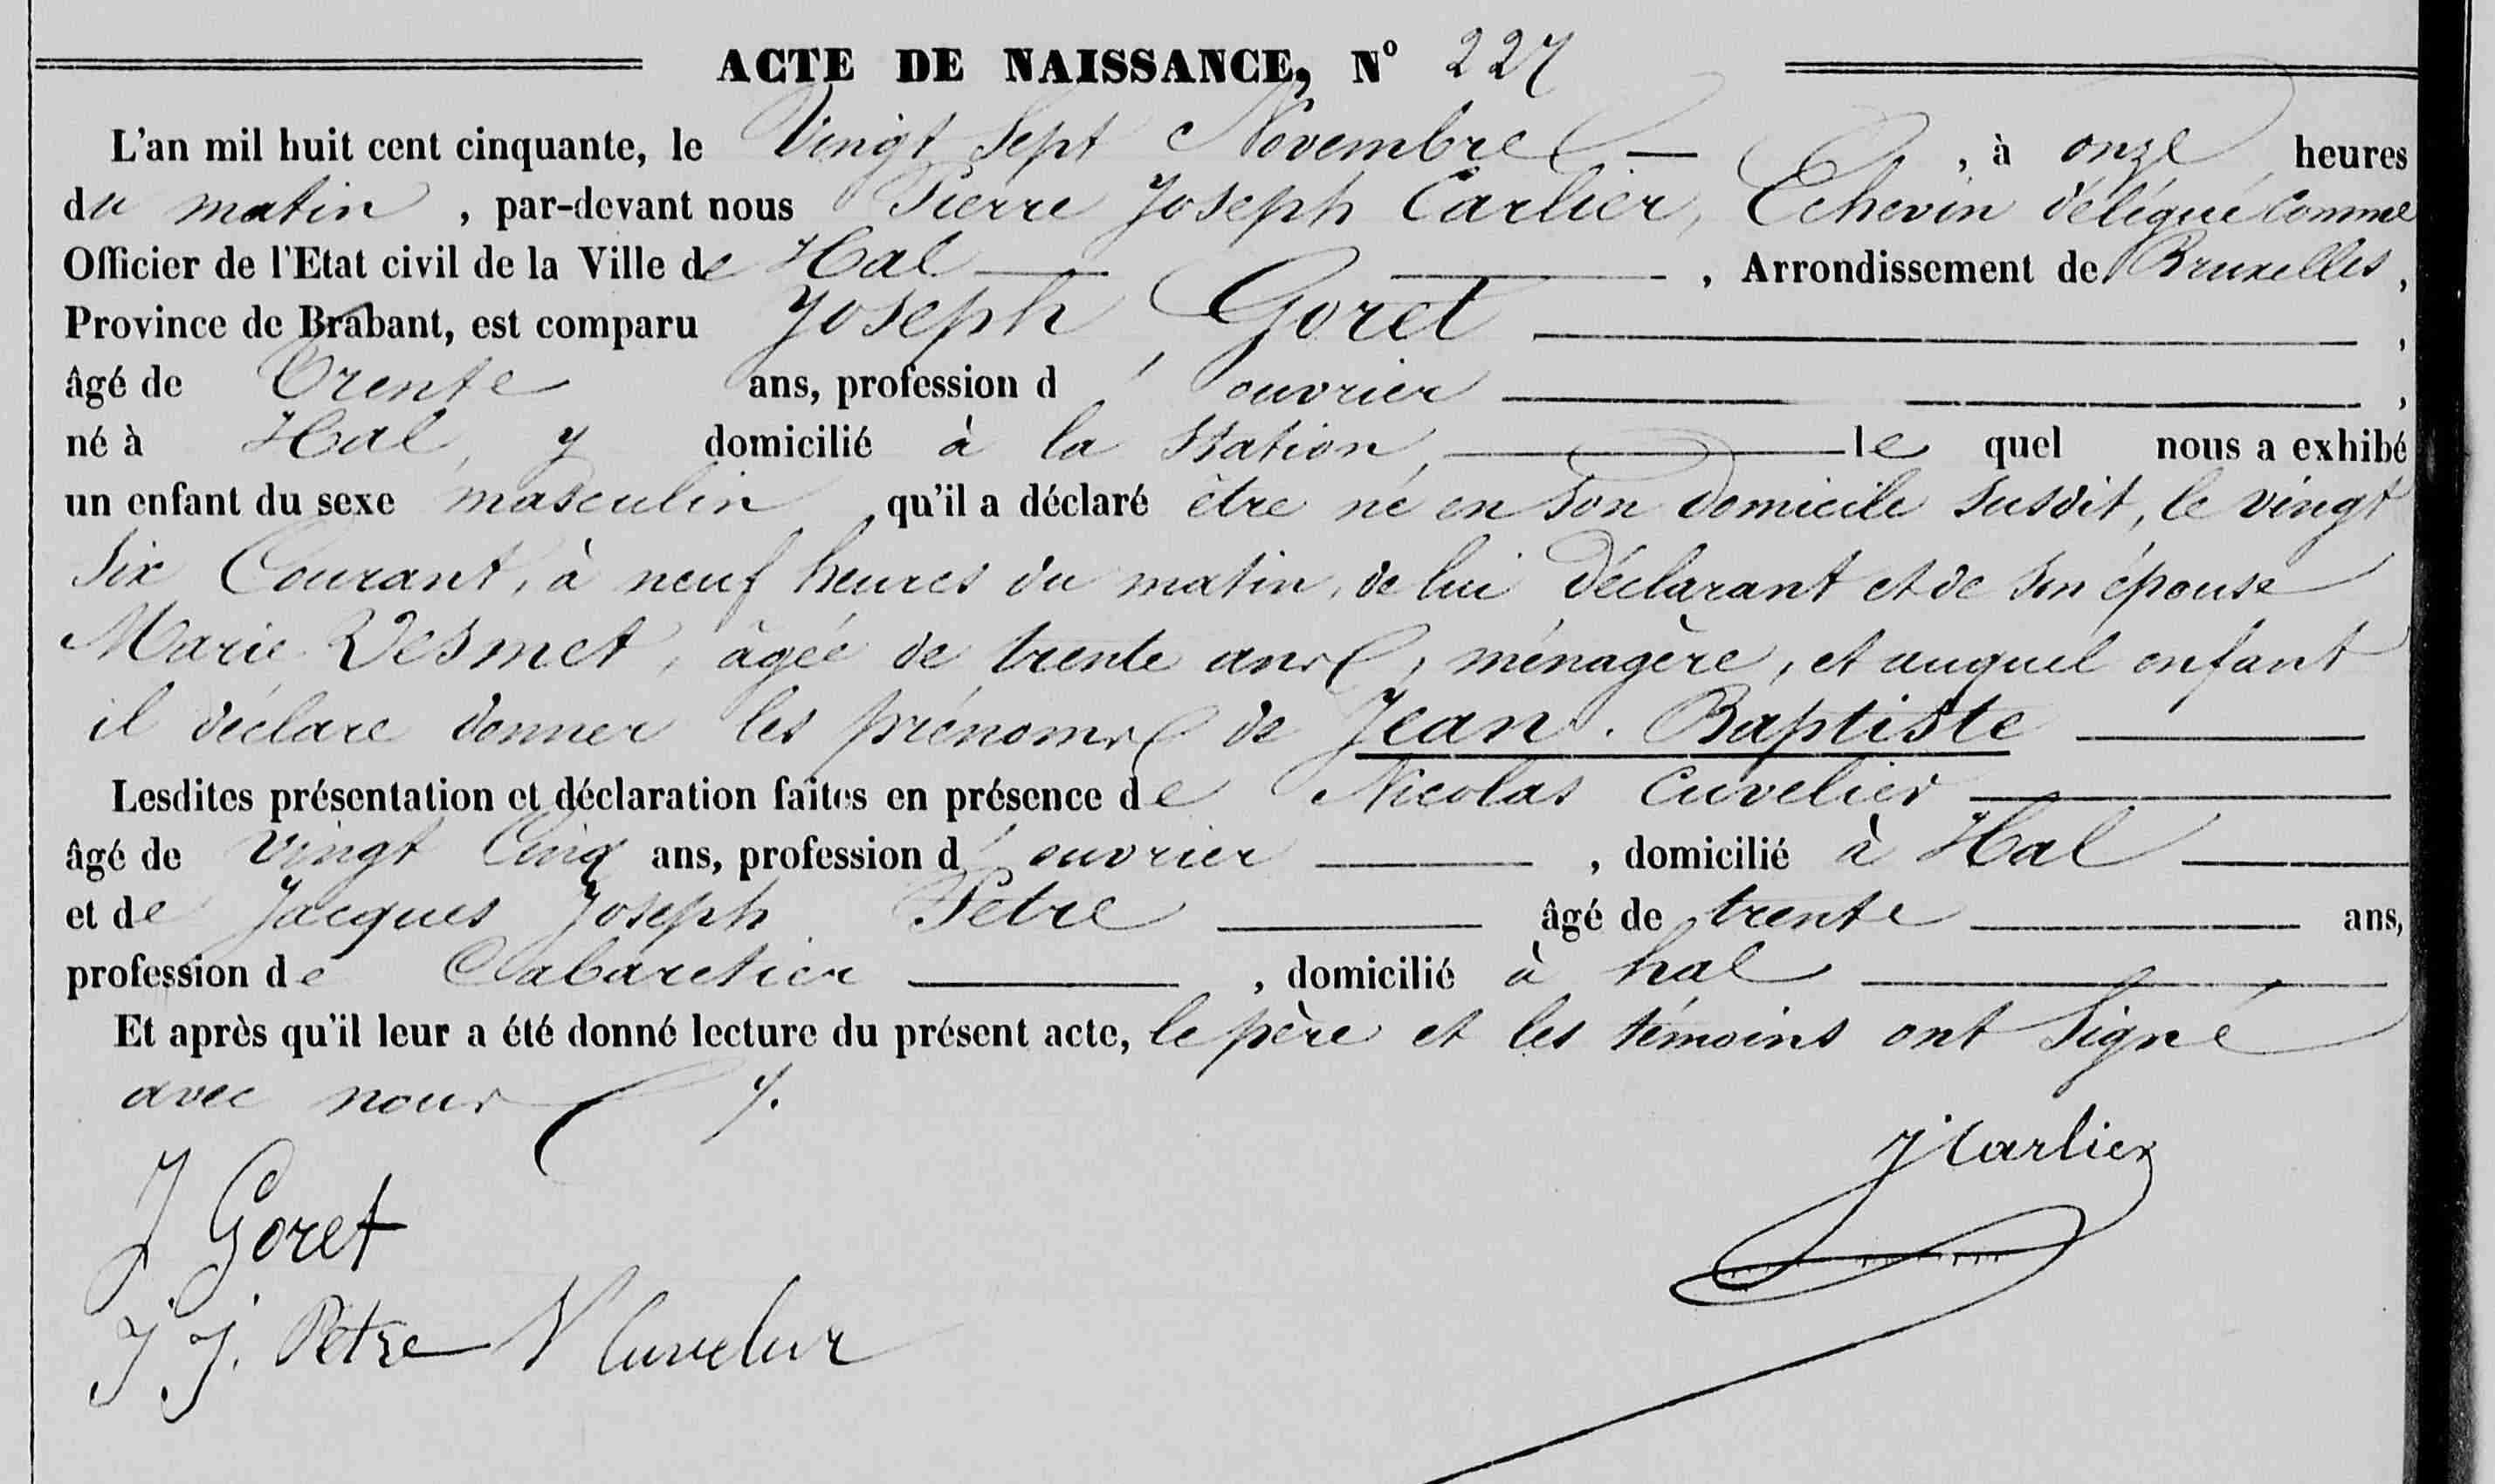 ACTE DE NAISSANCE, N° 227
L'an mil huit cent cinquante, le Vingt Sept Novembre, à onze heures
du matin, par-devant nous Pierre Joseph Carlier, Echevin délégué comme
Officier de l'Etat civil de la Ville de Hal, Arrondissement de Bruxelles,
Province de Brabant, est comparu Joseph Goret,
âgé de Trente ans, profession d'ouvrier,
né à Hal, y domicilié à la Station, lequel nous a exhibé
un enfant du sexe masculin, qu'il a déclaré être né en son domicile susdit, le vingt
Six Courant, à neuf heures du matin, de lui Déclarant et de son épouse
Marie Desmet, âgée de trente ans, ménagère, et auquel enfant
il déclare donner les prénoms de Jean. Baptiste
Lesdites présentation et déclaration faites en présence de Nicolas Cuvelier
âgé de vingt Cinq ans, profession d'ouvrier, domicilié à Hal
et de Jacques Joseph Petre âgé de trente ans,
profession de Cabaretier, domicilié à hal
Et après qu'il leur a été donné lecture du présent acte, le père et les témoins ont Signé
avec nous
J Goret
J Carlier
J J. Petre N Cuvelier